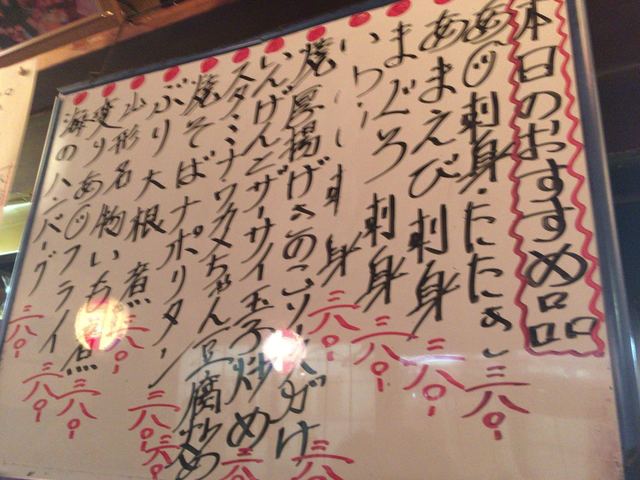 本日のおすすめ品
あじ刺身・たたき 三八〇
あまえび刺身 三八〇
まぐろ刺身 三八〇
いわし刺身 三八〇
焼厚揚げきのこソースがけ 三八〇
いんげんとザーサイ玉子炒め
スタミナワカメちゃん豆腐炒め
焼そばナポリタン 三八〇
ぶり大根 三八〇
山形名物いも煮 三八〇
変りあじフライ 三八〇
海のハンバーグ 三八〇